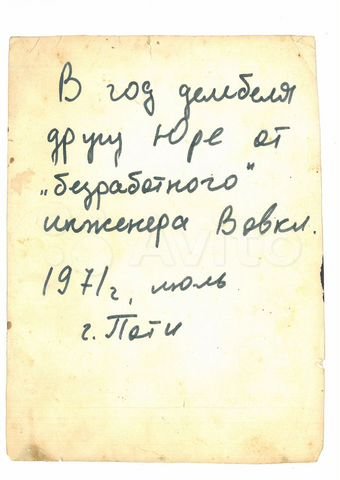 В год дембеля
другу Юре от
„безработного"
инженера Вовки.
1971 г, июль
г. Поти
Avito